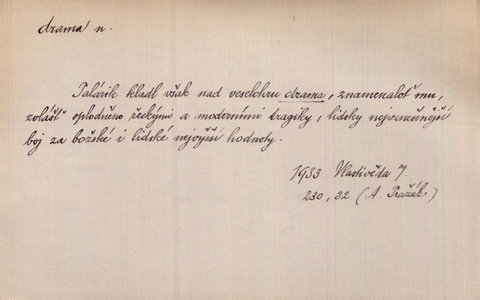 drama n.
Palárik kladl však nad veselohru drama, znamenaloť mu,
zvlášť oplodněno řeckými a moderními tragiky, lidsky nejvznešenější
boj za božské i lidské nejvyšší hodnoty.
1933 Vlastivěda 7.
230, 32 (A. Pražák)